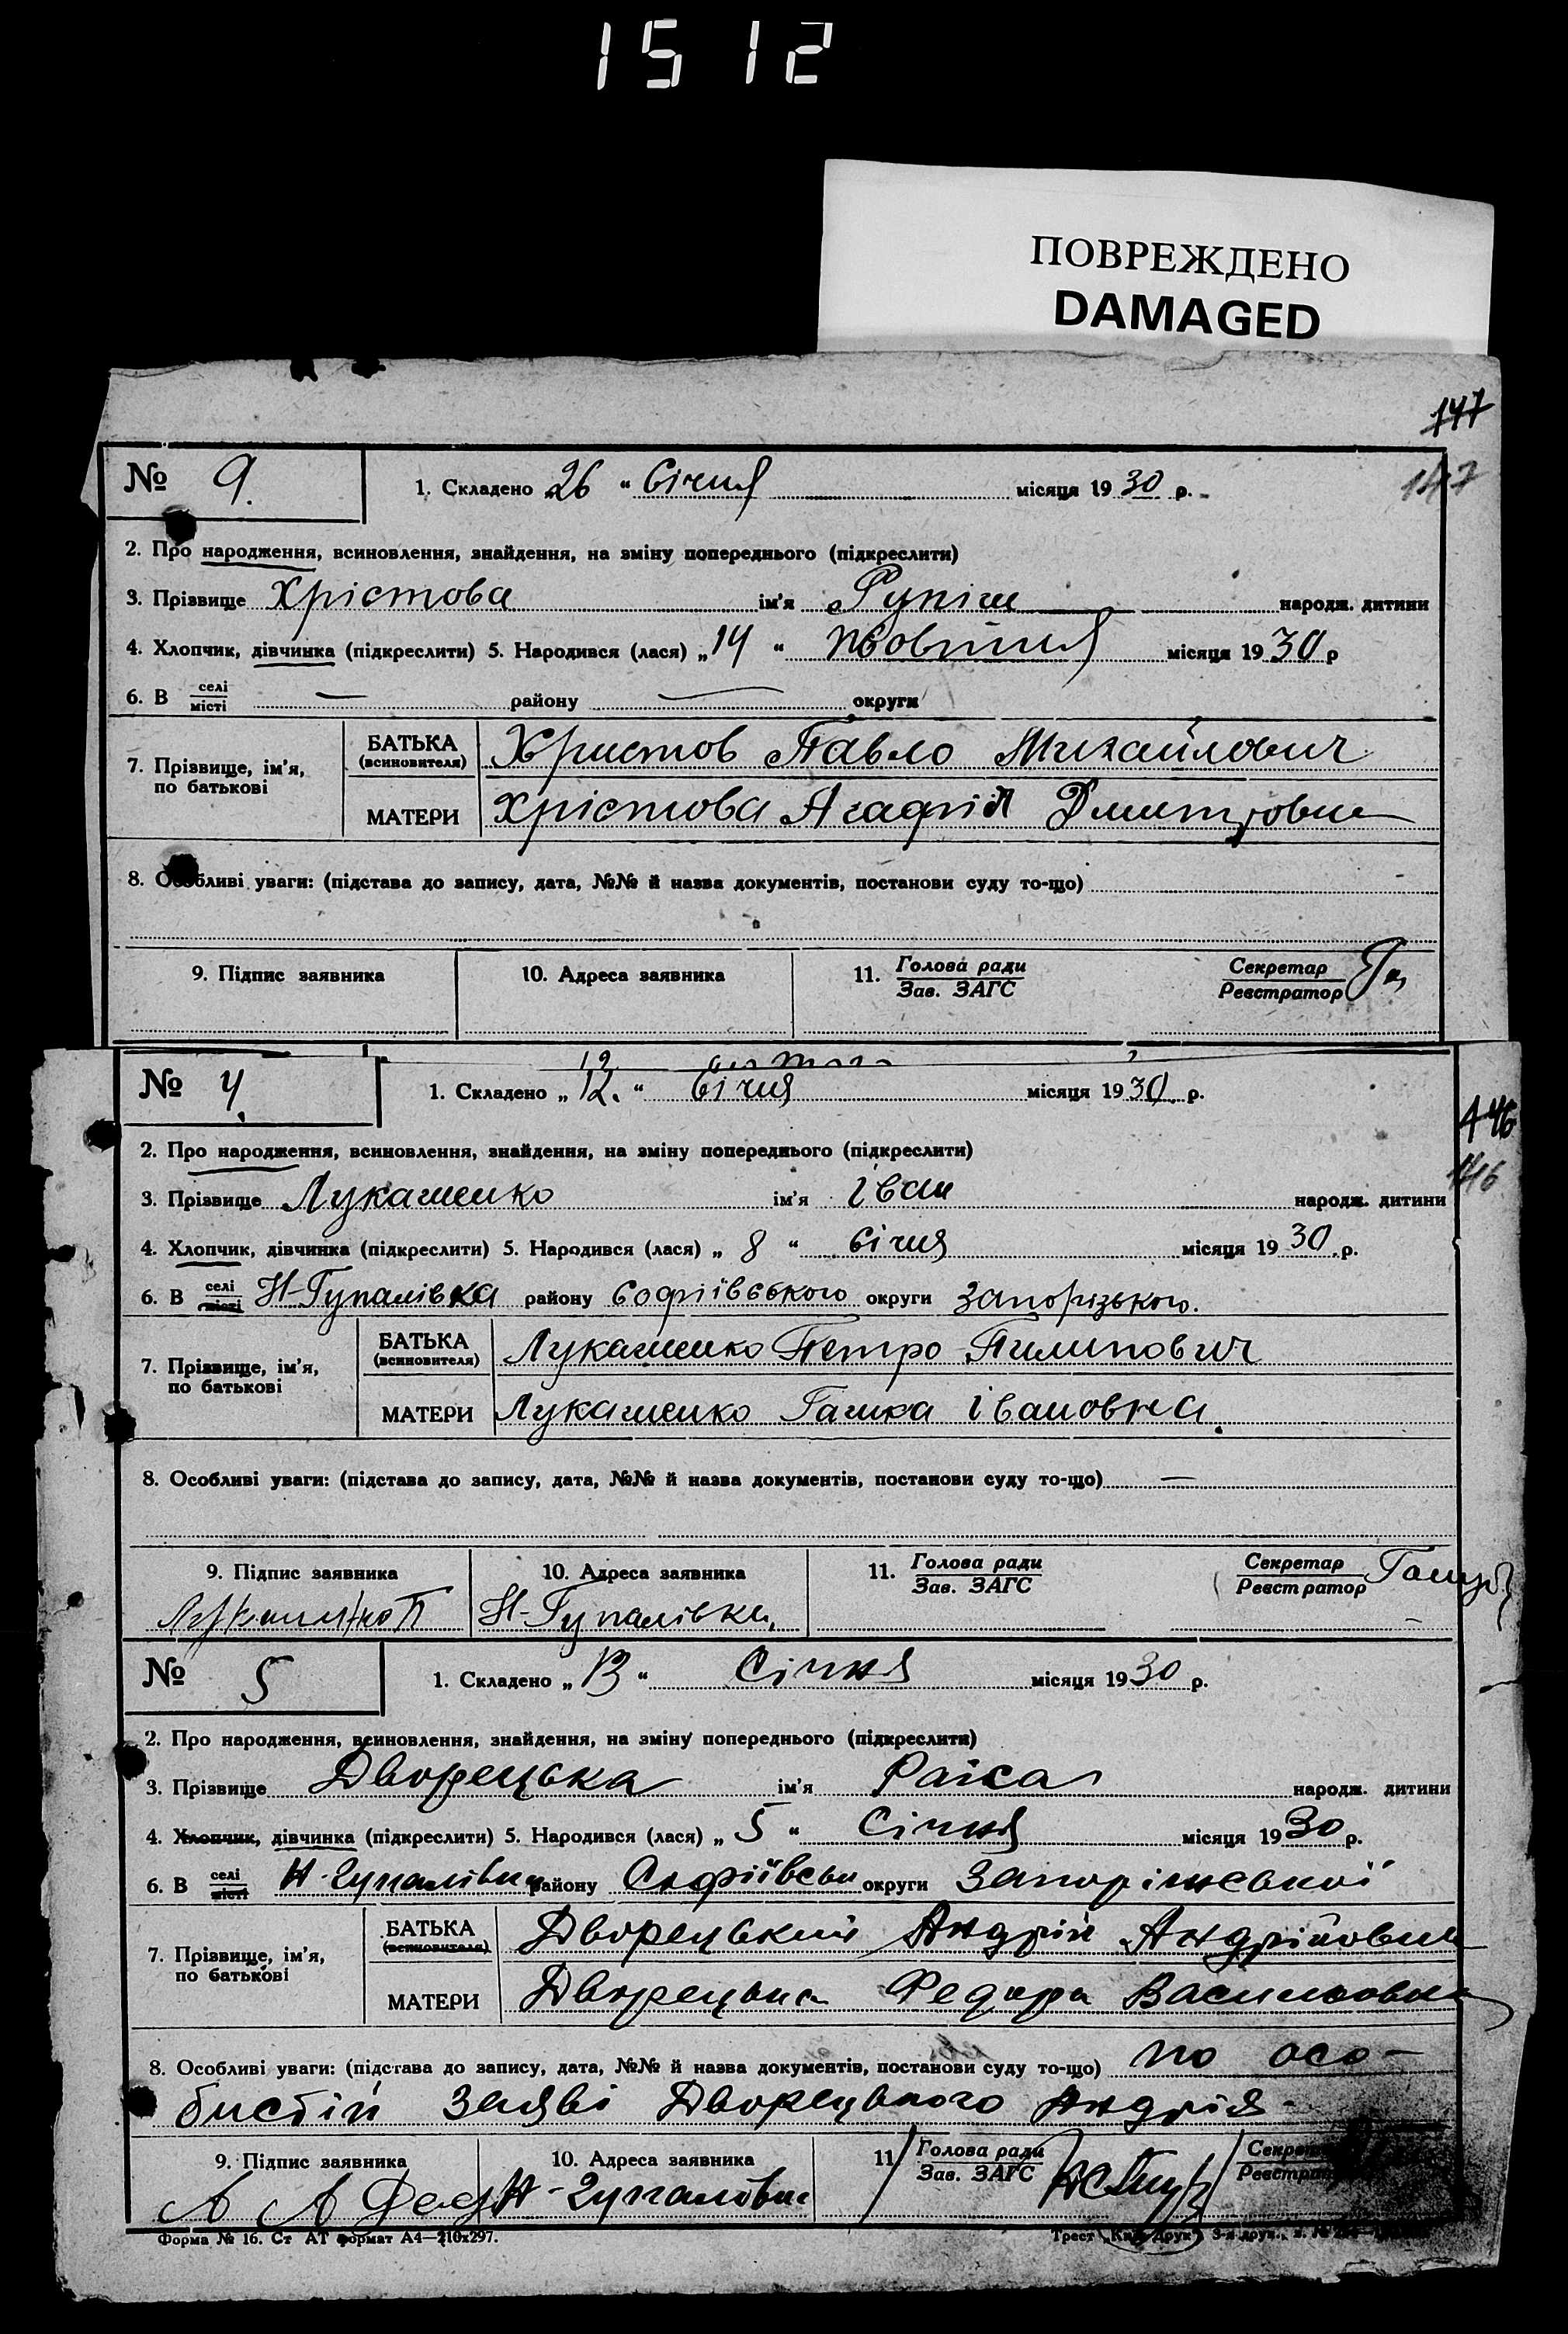 1512
ПОВРЕЖДЕНО
DAMAGED
147
147
№ 9. 1. Складено „26 “ Січня місяця 1930 р.
2. Про народження, всиновлення, знайдення, на зміну попереднього (підкреслити)
3. Прізвище Хрістова ім'я народж. дитини
4. Хлопчик, дівчинка (підкреслити) 5. Народився (лася) „14 “ місяця 1930 р
6. В селі
місті — району — округи
7. Прізвище, ім'я,
по батькові
БАТЬКА
(всиновителя) Христов Павло Михайлович
МАТЕРИ Хрістова Агафія Дмитровна
8. Особливі уваги: (підстава до запису, дата, №№ й назва документів, постанови суду то-що)
9. Підпис заявника 10. Адреса заявника 11. Голова ради
Зав. ЗАГС Секретар
Реєстратор
№ 4. 1. Складено „ 12. “ Січня місяця 1930 р.
146
146
2. Про народження, всиновлення, знайдення, на зміну попереднього (підкреслити)
3. Прізвище Лукашенко ім'я Іван народж. дитини
4. Хлопчик, дівчинка (підкреслити) 5. Народився (лася) „ 8 “ Січня місяця 1930 р.
6. В селі
місті Н-Гупалівка району Софіївського округи Запорізького.
7. Прізвище, ім'я,
по батькові
БАТЬКА
(всиновителя) Лукашенко Петро Пилипович
МАТЕРИ Лукашенко Гашка Івановна.
8. Особливі уваги: (підстава до запису, дата, №№ й назва документів, постанови суду то-що) —
9. Підпис заявника 10. Адреса заявника 11. Голова ради
Зав. ЗАГС Секретар
Реєстратор
Н-Гупалівка,
№ 5 1. Складено „ 13 “ Січня місяця 1930 р.
2. Про народження, всиновлення, знайдення, на зміну попереднього (підкреслити)
3. Прізвище Дворецька ім'я Раїса народж. дитини
4. Хлопчик, дівчинка (підкреслити) 5. Народився (лася) „ 5 “ Січня місяця 1930 р.
6. В селі
місті Н-Гупалівка району Софіївськ округи Запоріжської
7. Прізвище, ім'я,
по батькові
БАТЬКА
(всиновителя) Дворецький Андрій Андрійович
МАТЕРИ Дворецька Федора Василовна
8. Особливі уваги: (підстава до запису, дата, №№ й назва документів, постанови суду то-що) по осо-
бистій заяві Дворецького Андрія
9. Підпис заявника 10. Адреса заявника 11 Голова ради
Зав. ЗАГС
Н-Гупаловка
Форма № 16. Ст АТ формат А4—210х297. Трест „Київ-Друк“